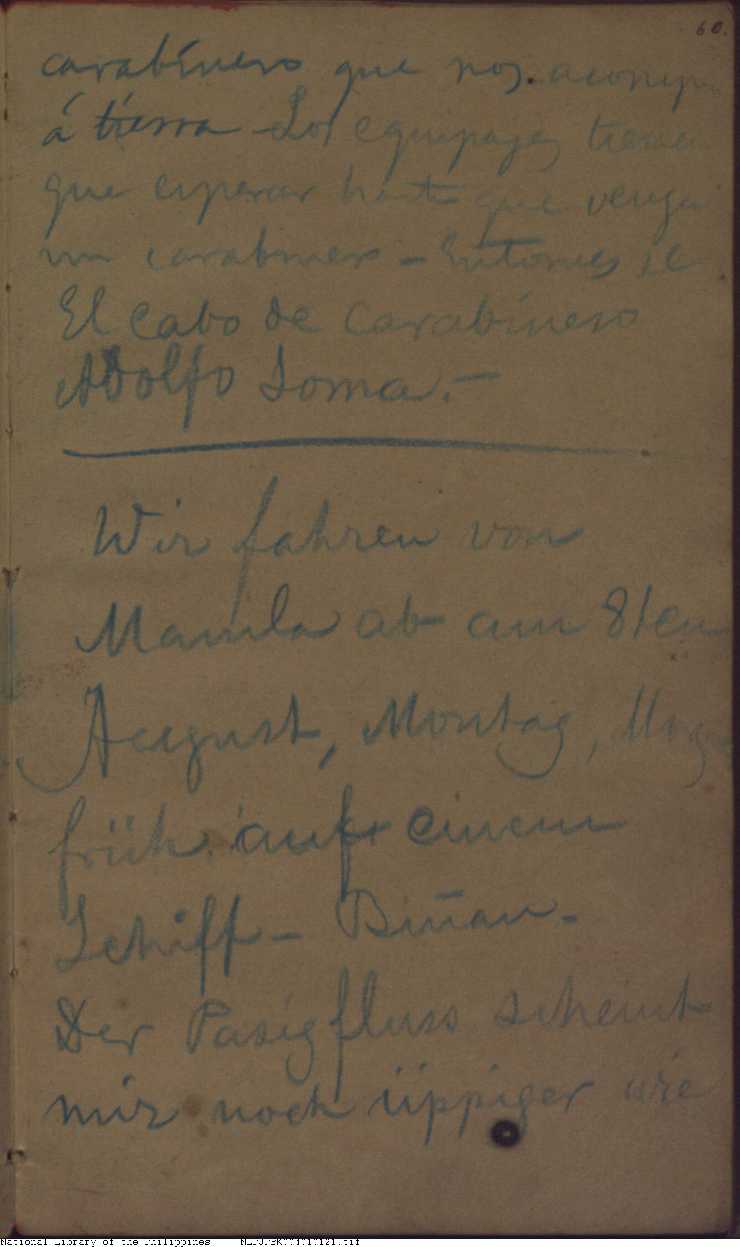 60.
carabinero que nos acompa
á tierra - Los equipajes tienen
que esperar hasta que venga
un carabinero - Entonces se
El cabo de carabinero
Adolfo Loma. -
Wir fahren von
Manila ab am 8ten
August, Montag,
früh auf einem
Schiff - Biñan -
Der Pasigfluss scheint
mir noch üppiger wie
National Library of the Philippines